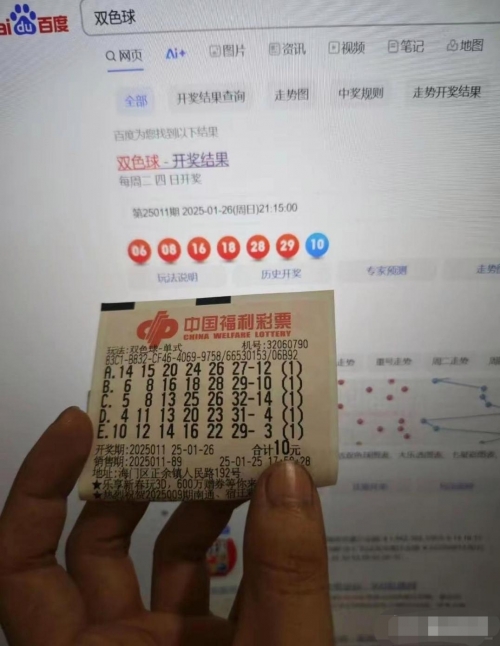 Bai du 百度
双色球
网页 Ai+ 图片 资讯 视频 笔记 地图
全部 开奖结果查询 走势图 中奖规则 走势开奖结果
百度为您找到以下结果
双色球 - 开奖结果
每周二 四 日开奖
第25011期 2025-01-26(周日)21:15:00
06 08 16 18 28 29 10
玩法说明 历史开奖 专家预测 走势
中国福利彩票
CHINA WELFARE LOTTERY
玩法:双色球-单式 机号:32060790
83C1-8832-CF46-4069-9758/66530153/06B92
A.14 15 20 24 26 27-12 (1)
B. 6 8 16 18 28 29-10 (1)
C. 5 8 13 25 26 32-14 (1)
D. 4 11 13 20 23 31- 4 (1)
E.10 12 14 16 22 29- 3 (1)
开奖期:2025011 25-01-26 合计10元
销售期:2025011-89 25-01-25
地址:海门区正余镇人民路192号
★乐享新春玩3D, 600万赠券等你来